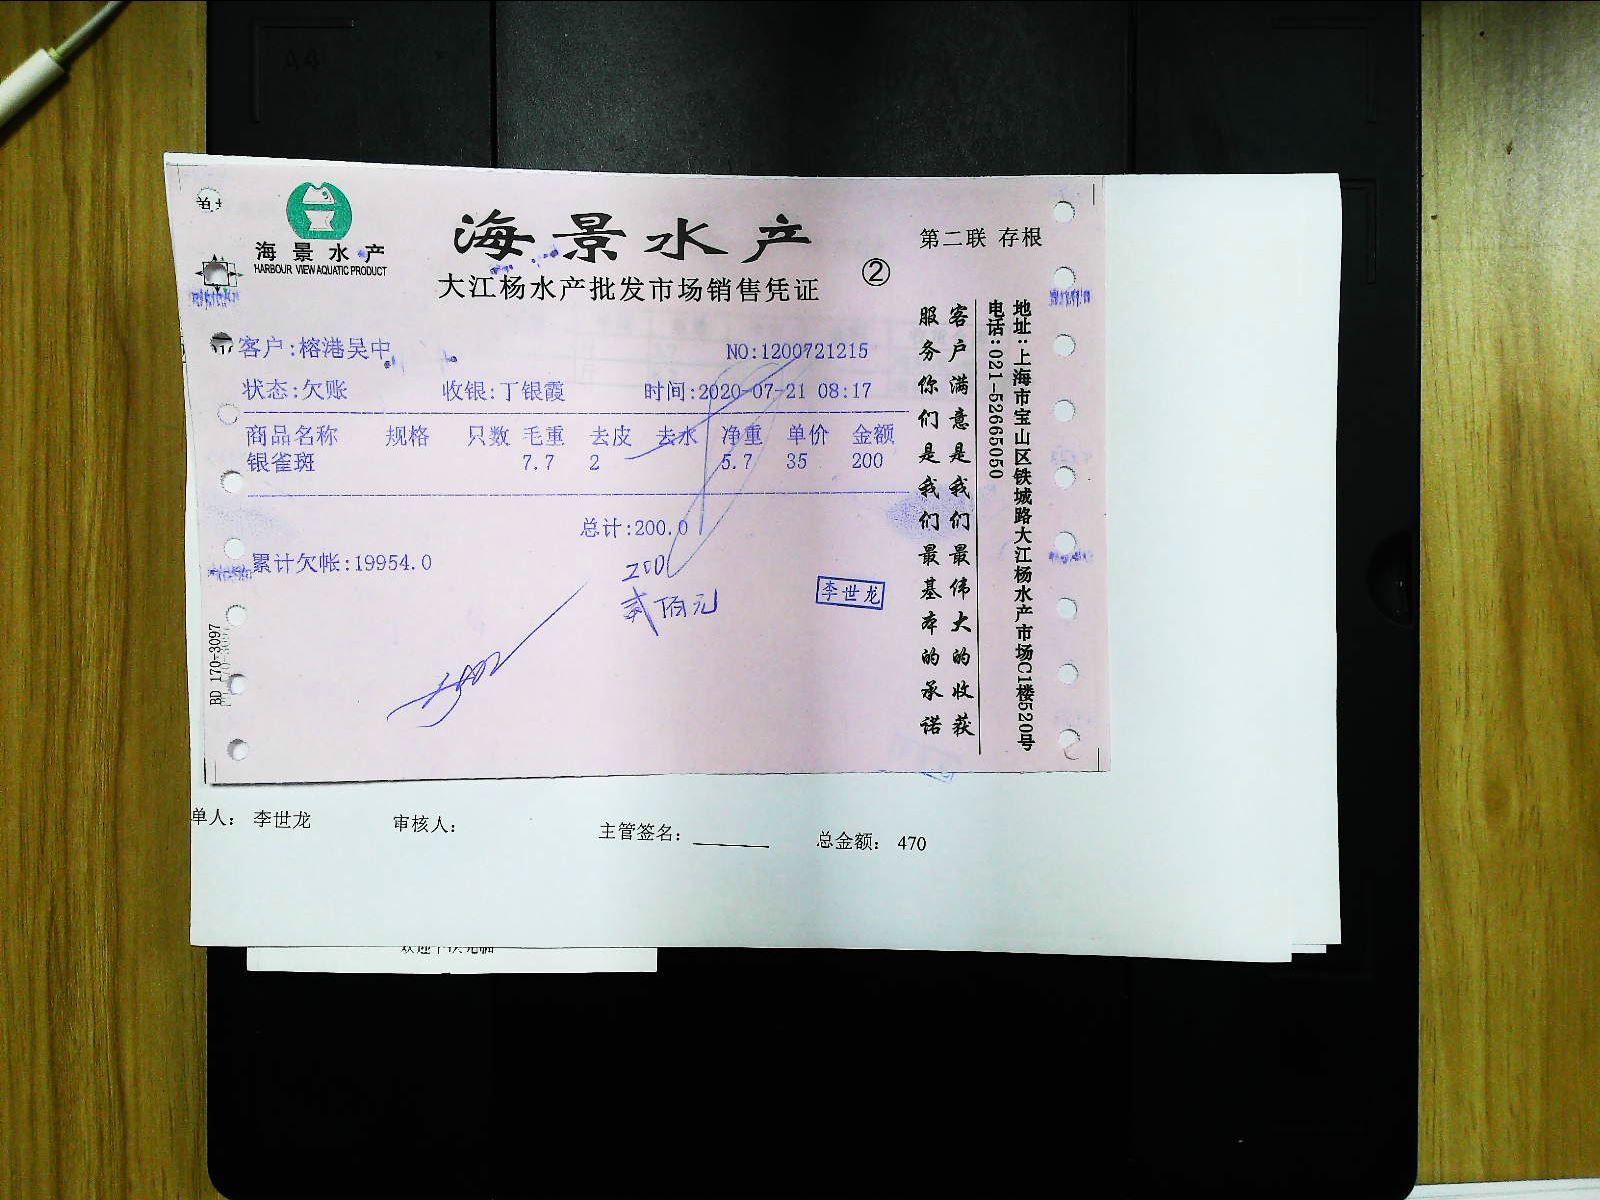 海景水产
HARBOUR VIEW AQUATIC PRODUCT
海景水产
大江杨水产批发市场销售凭证
②
第二联 存根
客户:榕港吴中
NO:1200721215
状态:欠账 收银:丁银霞 时间:2020-07-21 08:17
商品名称 规格 只数 毛重 去皮 去水 净重 单价 金额
银雀斑 7.7 2 5.7 35 200
总计:200.0
累计欠帐:19954.0
200
贰佰元
李世龙
客户满意是我们最伟大的收获
服务你们是我们最基本的承诺
地址:上海市宝山区铁城路大江杨水产市场C1楼520号
电话:021-52665050
BD 170-3097
单人: 李世龙 审核人: 主管签名: 总金额: 470
欢迎下次光临